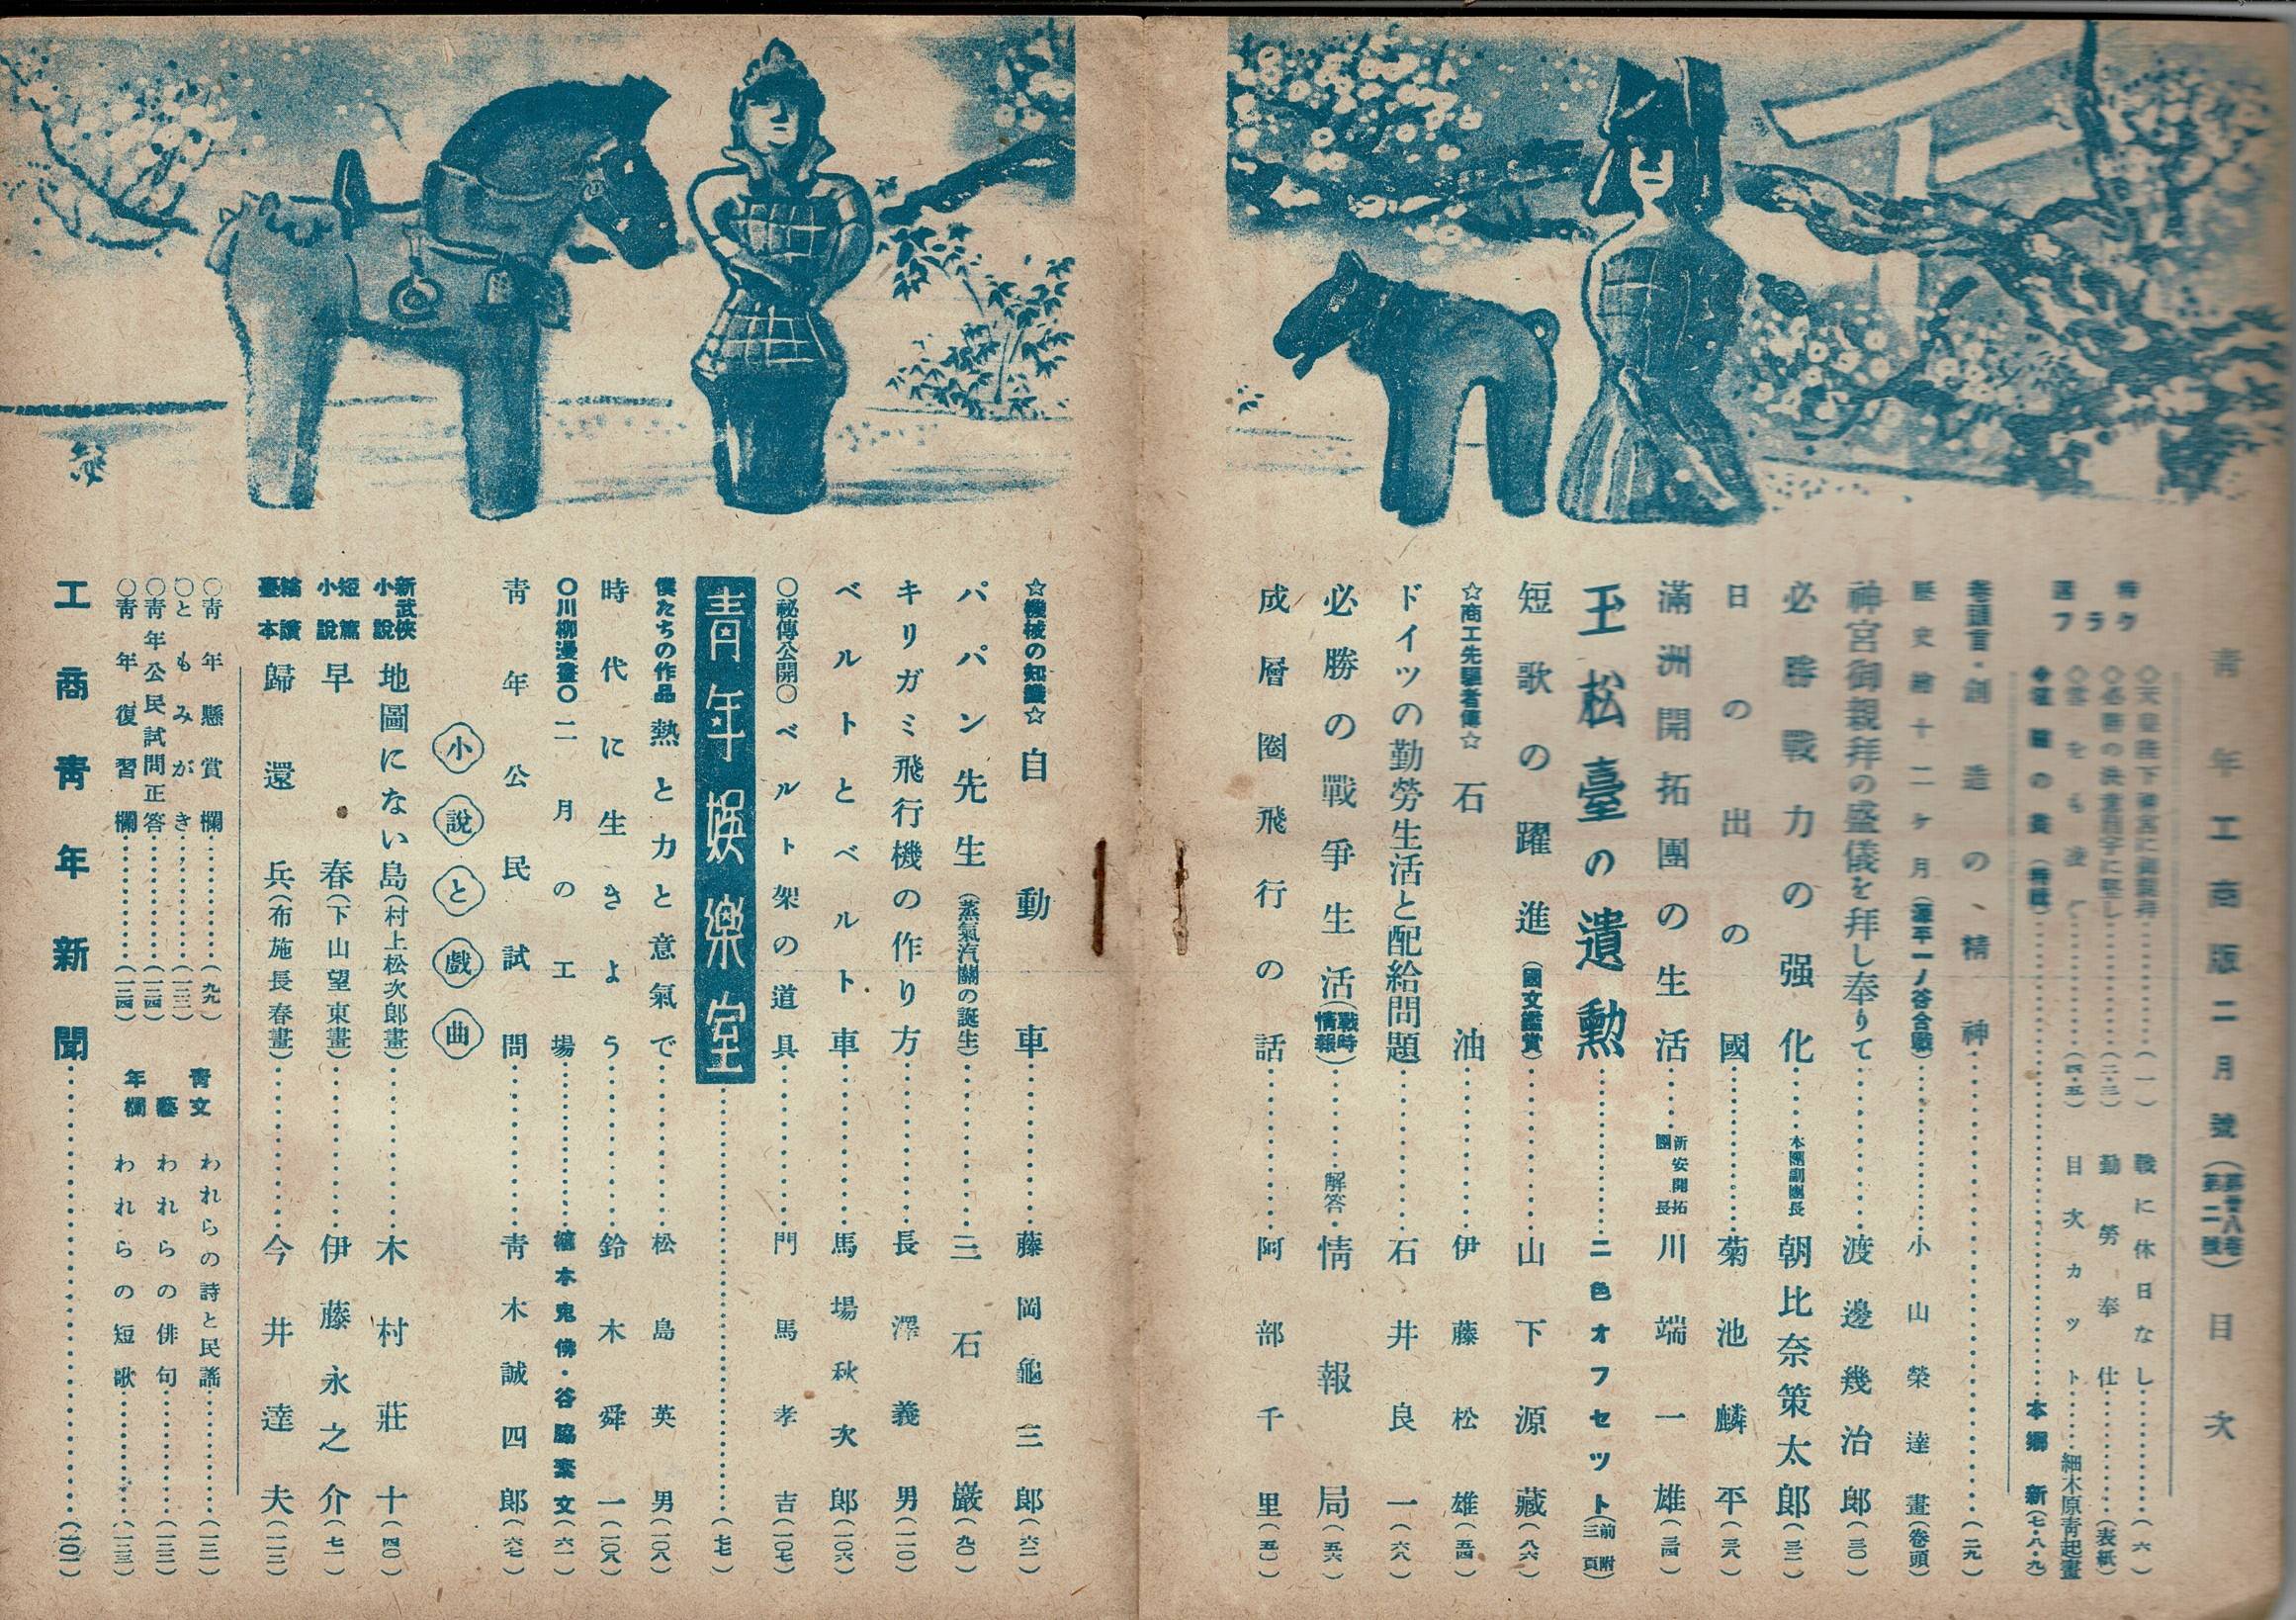 青年 工商版 二月號 (第廿八卷 第二號) 目次
特選 グラフ
◇天皇陛下神宮に御親拜………(一)
◇必勝の決意
………(二・三)
………(四・五)
戰に休日なし………(六)
勤勞奉仕………(表紙)
目次カット………細木原青起畫
………本鄕新(七・八・九)
卷頭言・創造の精神………(二九)
歷史繪十二ヶ月(源平一ノ谷合戰)………小山榮達畫(卷頭)
神宮御親拜の盛儀を拜し奉りて………渡邊幾治郎(三〇)
必勝戰力の强化………本團副團長 朝比奈策太郎(三二)
日の出の國………菊池麟平(三八)
滿洲開拓團の生活………新安開拓團長 川端一雄(三四)
玉松臺の遺勳………二色オフセット(前附三頁)
短歌の躍進(國文鑑賞)………山下源藏(八六)
☆商工先驅者傳☆ 石油………伊藤松雄(五四)
ドイツの勤勞生活と配給問題………石井良一(六八)
必勝の戰爭生活(戰時情報)………解答・情報局(五六)
成層圈飛行の話………阿部千里(五〇)
☆機械の知識☆ 自動車………藤岡龜三郎(六二)
パパン先生(蒸氣汽關の誕生)………三石巖(九〇)
キリガミ飛行機の作り方………長澤義男(一一〇)
ベルトとベルト車………馬場秋次郎(一〇六)
○祕傳公開○ ベルト架の道具………門馬孝吉(一〇七)
青年娛樂室………(七七)
僕たちの作品 熱と力と意氣で………松島英男(一〇八)
時代に生きよう………鈴木舜一(一〇八)
○川柳漫畫○ 二月の工場………榎本鬼佛・谷脇素文(六一)
青年公民試問………青木誠四郎(六七)
小說と戲曲
新武俠小說 地圖にない島(村上松次郎畫)………木村莊十(四〇)
短篇小說 早春(下山望東畫)………伊藤永之介(七一)
輪讀臺本 歸還兵(布施長春畫)………今井達夫(一一二)
○青年懸賞欄………(九九)
○ともみがき………(一三二)
○青年公民試問正答………(一三四)
○青年復習欄………(一三四)
青年文藝欄
われらの詩と民謠………(一三一)
われらの俳句………(一三二)
われらの短歌………(一三三)
工商青年新聞………(一〇一)